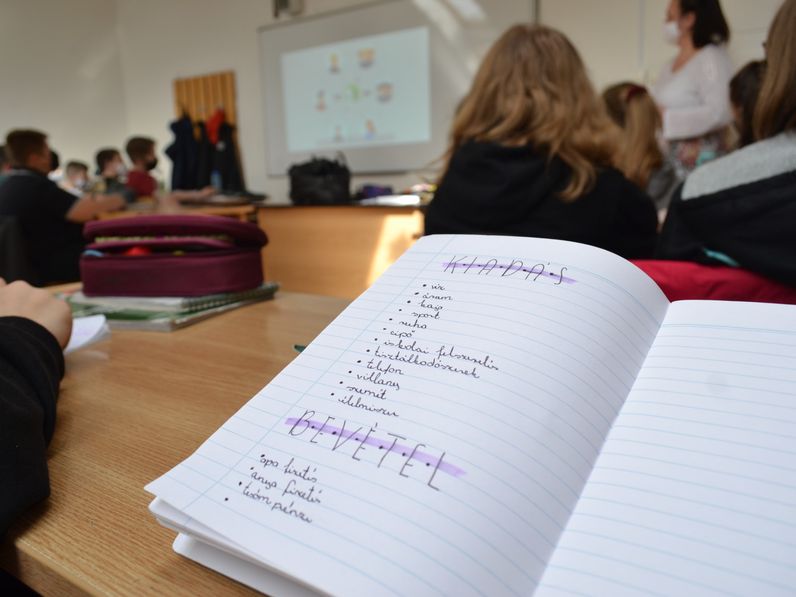 K•I•A•D•Á•S
• víz
• áram
• kaja
• sport
• ruha
• cipő
• iskolai felszerelés
• tisztálkodószerek
• telefon
• villany
• szemét
• élelmiszer
B•E•V•É•T•E•L
• apa fizetés
• anya fizetés
• tesóm pénze